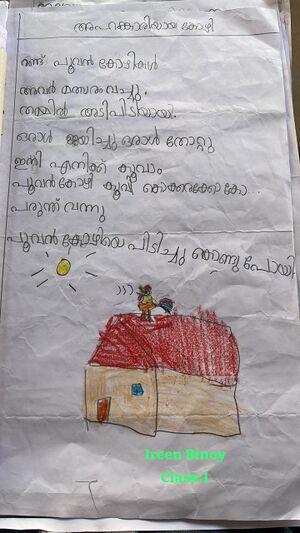 അഹങ്കാരിയായ കോഴി
രണ്ട് പൂവൻ കോഴികൾ
അവർ മത്സരം വച്ചു.
തമ്മിൽ അടിപിടിയായി.
ഒരാൾ ജയിച്ചു ഒരാൾ തോറ്റു
ഇനി എനിക്ക് കൂവാം
പൂവൻകോഴി കൂവി കൊക്കരക്കോ കോ...
പരുന്ത് വന്നു
പൂവൻ കോഴിയെ പിടിച്ചു കൊണ്ടുപോയി.
Ireen Binoy
Class:1